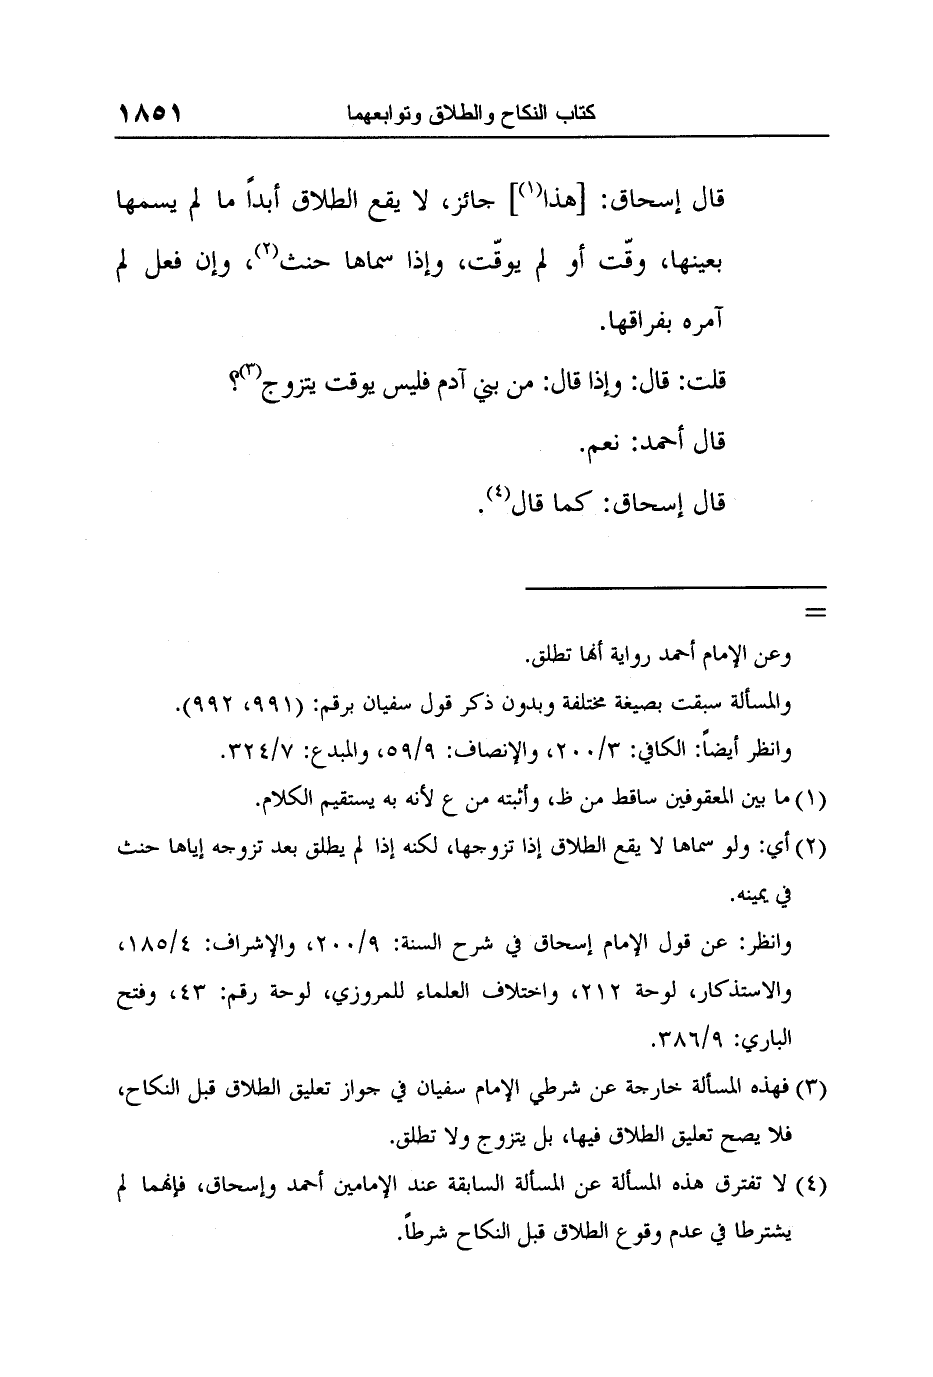 كتاب النكاح والطلاق وتوابعهما ١٨٥١
قال إسحاق: [هذا(١)] جائز، لا يقع الطلاق أبداً ما لم يسمها
بعينها، وقّت أو لم يوقّت، وإذا سماها حنث(٢)، وإن فعل لم
آمره بفراقها.
قلت: قال: وإذا قال: من بني آدم فليس يوقت يتزوج(٣)؟
قال أحمد: نعم.
قال إسحاق: كما قال(٤).
=
وعن الإمام أحمد رواية أنها تطلق.
والمسألة سبقت بصيغة مختلفة وبدون ذكر قول سفيان برقم: (٩٩١، ٩٩٢).
وانظر أيضاً: الكافي: ٢٠٠/٣، والإنصاف: ٥٩/٩، والمبدع: ٣٢٤/٧.
(١) ما بين المعقوفين ساقط من ظ، وأثبته من ع لأنه به يستقيم الكلام.
(٢) أي: ولو سماها لا يقع الطلاق إذا تزوجها، لكنه إذا لم يطلق بعد تزوجه إياها حنث
في يمينه.
وانظر: عن قول الإمام إسحاق في شرح السنة: ٢٠٠/٩، والإشراف: ١٨٥/٤،
والاستذكار، لوحة ٢١٢، واختلاف العلماء للمروزي، لوحة رقم: ٤٣، وفتح
الباري: ٣٨٦/٩.
(٣) فهذه المسألة خارجة عن شرطي الإمام سفيان في جواز تعليق الطلاق قبل النكاح،
فلا يصح تعليق الطلاق فيها، بل يتزوج ولا تطلق.
(٤) لا تفترق هذه المسألة عن المسألة السابقة عند الإمامين أحمد وإسحاق، فإنهما لم
يشترطا في عدم وقوع الطلاق قبل النكاح شرطاً.